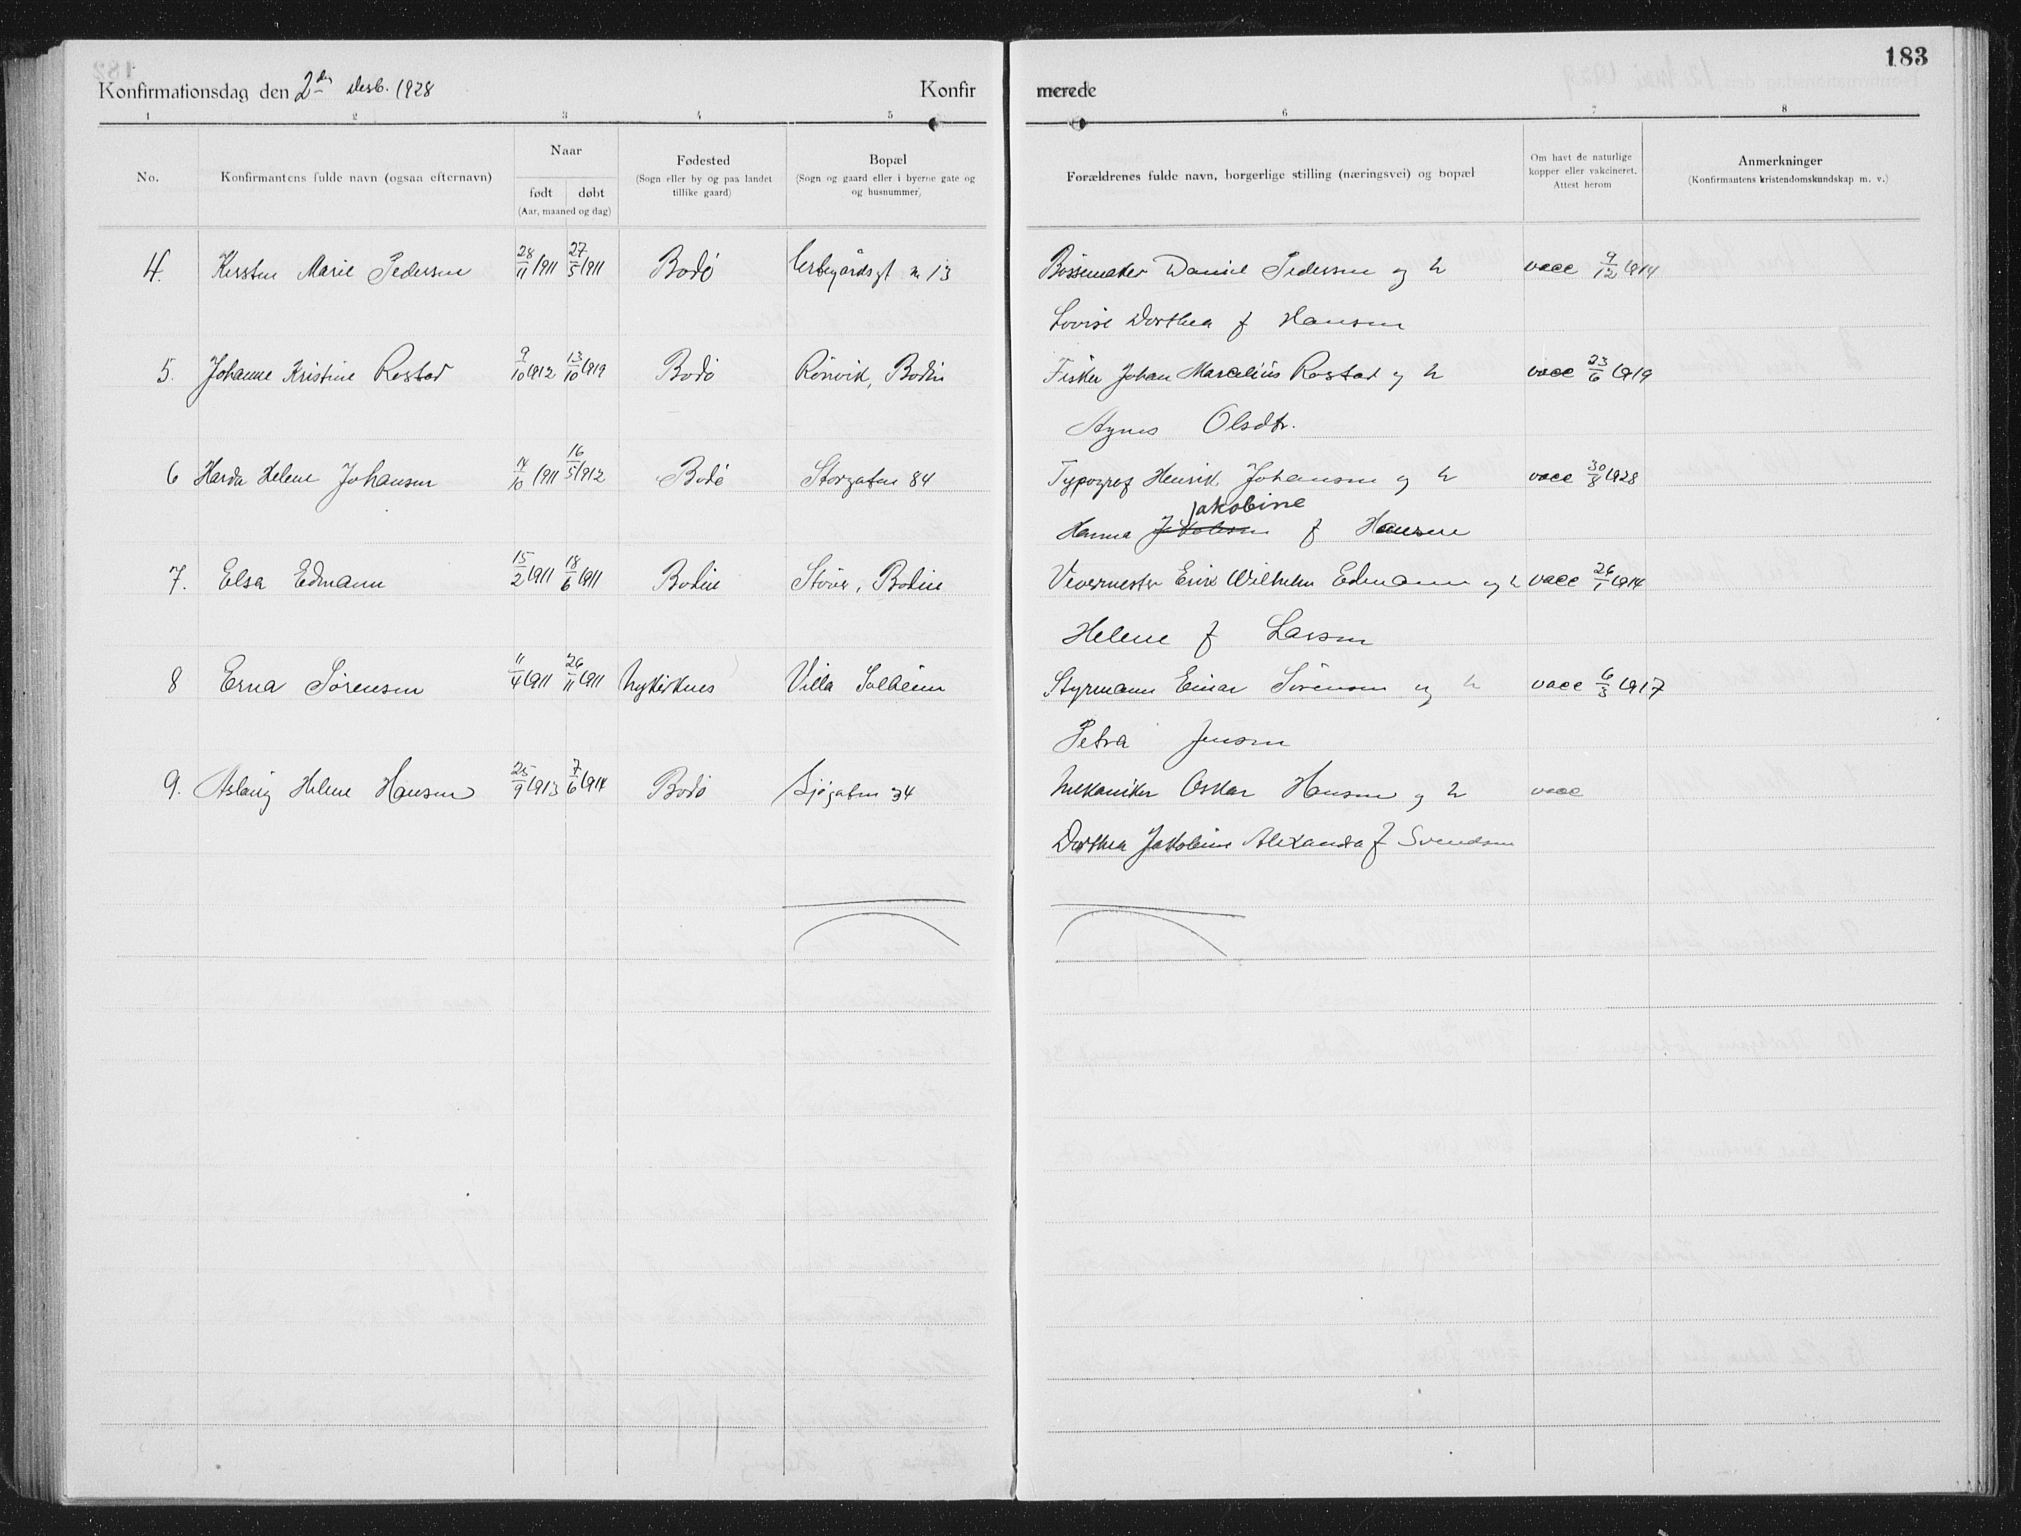 183
Konfirmationsdag den 2den Desb. 1928 Konfirmerede
1 2 3 4 5 6 7 8
No.
Konfirmantens fulde navn (ogsaa efternavn)
Naar
født døbt
(Aar, maaned og dag)
Fødested
(Sogn eller by og paa landet
tillike gaard)
Bopæl
(Sogn og gaard eller i byerne gate og
og husnummer)
Forældrenes fulde navn, borgerlige stilling (næringsvei) og bopæl
Om havt de naturlige
kopper eller vakcineret.
Attest herom
Anmerkninger
(Konfirmantens kristendomskundskap m. v.)
4. Kirsten Marie Pedersen 28/11 1911 27/5 1911 Bodø n 13 Bøssemaker Daniel Pedersen og h vacc 9/12 1914
Lovise Dorthea f Hansen
5. Johanne Kristine Rostad 9/10 1912 13/10 1919 Bodø Rønvik, Bodin Fisker Johan Marcelius Rostad og h vacc 23/6 1919
Agnes Olsdtr.
6 Harda Helene Johansen 14/10 1911 16/5 1912 Bodø Storgaten 84 Typograf Henrik Johansen og h vacc 30/8 1928
Jakobine
Hanna f Hansen
7. Elsa Edmann 15/2 1911 18/6 1911 Bodin Støver, Bodin Vevermester Erik Wilhelm Edmann og h vacc 26/1 1914
Helene f Larsen
8 Erna Sørensen 11/4 1911 26/11 1911 Nykirknes Villa Solheim Styrmann Einar Sørensen og h vacc 6/3 1917
Petra Jensen
9. Aslaug Helene Hansen 25/9 1913 7/6 1914 Bodø Sjøgaten 34 Mekaniker Oskar Hansen og h vacc
Dorthea Jakobine Alexandra f Svendsen